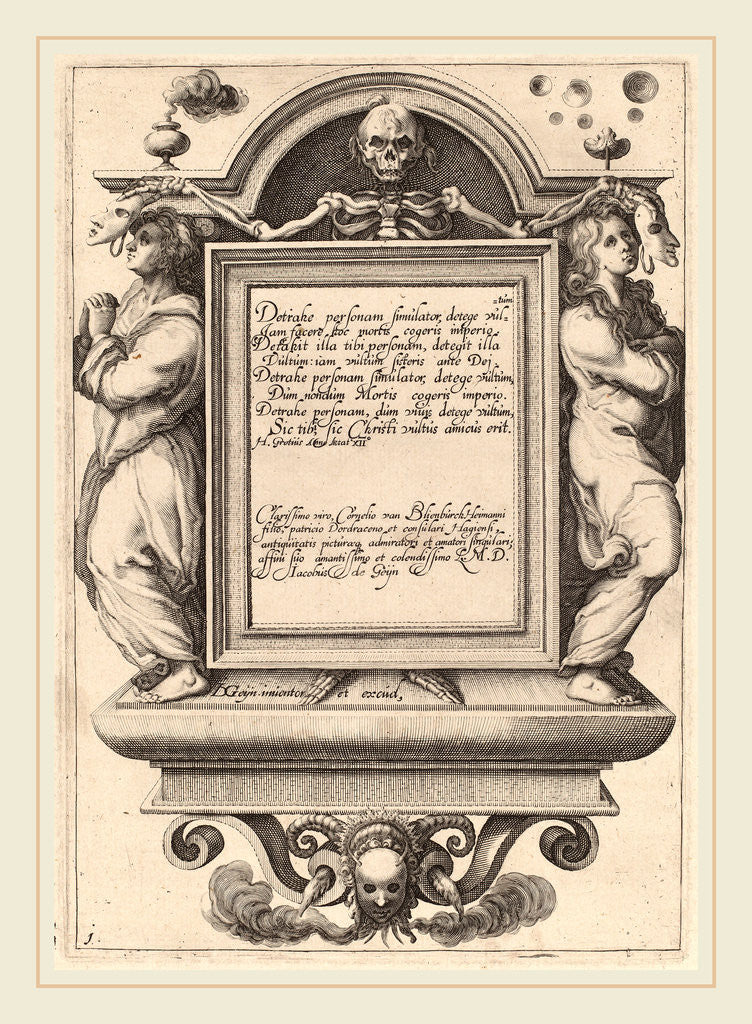 Detrahe personam simulator, detege vul-
=tum
Iam facere hoc mortis cogeris imperio.
Detrahit illa tibi personam, detegit illa
Vultum: iam vultum sisteris ante Dei.
Detrahe personam simulator, detege vultum,
Dum nondum Mortis cogeris imperio.
Detrahe personam, dum vivis detege vultum,
Sic tibi sic Christi vultus amicus erit.
H. Grotius Anno Aetat XII°
Clarissimo viro, Cornelio van Blienburch Heimanni
filio, patricio Dordraceno et consulari Hagiensi,
antiquitatis picturæq, admiratori et amatori singulari;
affini suo amantissimo et colendissimo L. M. D.
Iacobus de Geijn
DGeijn inventor et excud,
1.